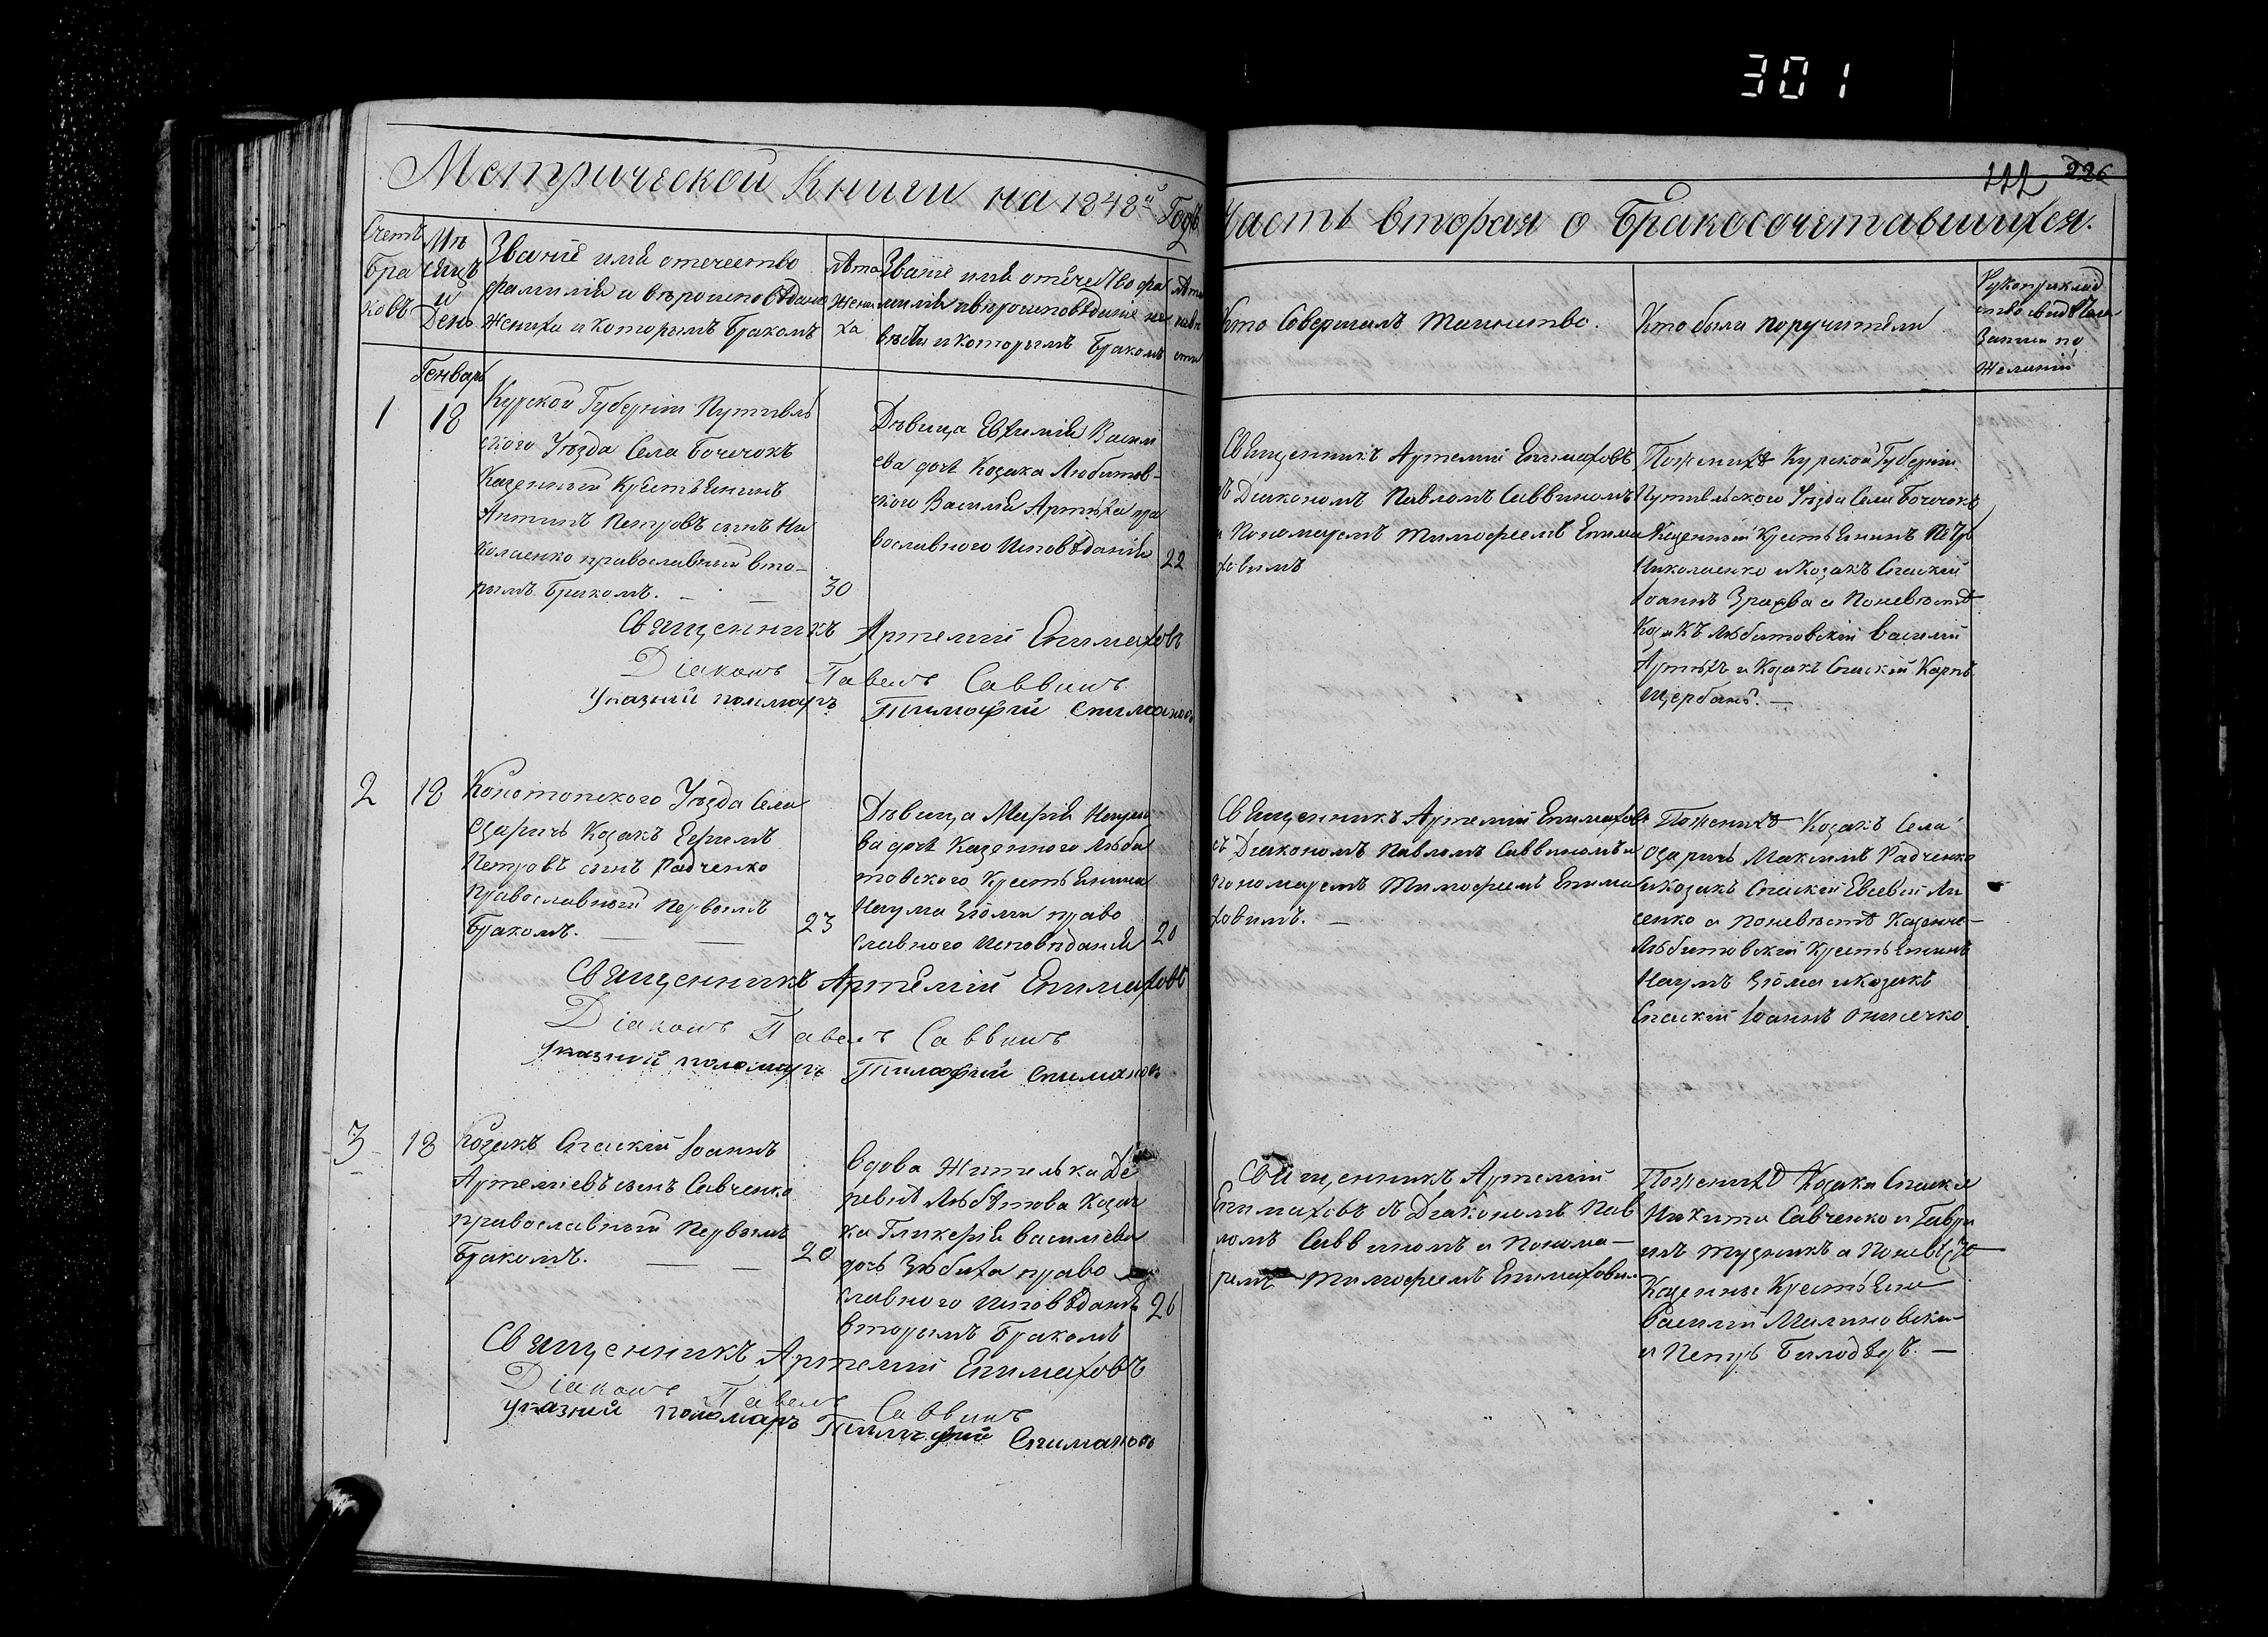 301
122 226
Метрической Книги на 1848й Годъ
Часть вторая о Бракосочетавшихся.
Счетъ
бра
ковъ
Мѣ
сяцъ
и
День
Званіе имя отечество
фамилія и вѣроисповѣданіе
жениха и которымъ бракомъ
Лѣта
жени
ха
Званіе имя отечество фа
милія и вѣроисповѣданіе не
вѣсты и которымъ бракомъ
Лѣта
невѣ
сты
Кто Совершалъ Таинство.
Кто были поручители
Рукоприклад
ство свидѣтелей
Записи по
желанію
Генварь
1
18
Курской Губерніи Путивль
ского Уѣзда Села Бочечокъ
Казенный Крестьянинъ
Антипъ Петровъ сынъ Ни
колаенко православный вто-
рымъ бракомъ.
30
Дѣвица Евфимія Васил
ева дочь Козака Любитов-
ского Василія Артюха пра
вославного Исповѣданія
22
Священникъ Артемій Епимаховъ
съ Диакономъ Павломъ Саввиномъ
и Пономаремъ Тимофеемъ Епима
ховимъ
Пожениху Курской Губерніи
Путивльского Уѣзда Села Бочечокъ
Казенный Крестьянинъ Петръ
Николаенко и Козакъ Спаскій
Іоаннъ а Поневѣстѣ
Козакъ Любитовскій Василій
Артюхъ и Козакъ Спаскій Карпъ
Щербакъ. —
Священникъ Артемій Епимаховъ
Діаконъ Павелъ Саввинъ
Указний пономарь Тимофій Епимаховъ
2
18
Конотопского Уѣзда Села
Озаричъ Козакъ Ефимъ
Петровъ сынъ Радченко
Православный Первымъ
Бракомъ.
23
Дѣвица Марія Наумо
ва дочь Казенного Люби
товского Крестьянина
Наума Зюмы право
славного Исповѣданія
20
Священникъ Артемій Епимаховъ
съ Диакономъ Павломъ Саввиномъ и
Пономаремъ Тимофеемъ Епима
ховимъ. —
Пожениху Козакъ Села
Озаричъ Максимъ Радченко
и Козакъ Спаскій Евсевій Ли
сенко а Поневѣстѣ Казенно-
Любитовскій Крестьянинъ
Наумъ Зюма и Козакъ
Спаскій Іоаннъ Онисечко
Священникъ Артемій Епимаховъ
Діаконъ Павелъ Саввинъ
Указний пономарь Тимофій Епимаховъ
3
18
Козакъ Спаскій Іоаннъ
Артеміевъ сынъ Савченко
православный Первымъ
Бракомъ.
20
Вдова Жителька Де
ревнѣ Любѣтова Козач
ка Гликерія Василіева
дочь Зюбиха право
славного Исповѣданія
вторымъ Бракомъ
26
Священникъ Артемій
Епимаховъ съ Диакономъ Пав
ломъ Саввиномъ и Понома-
ремъ Тимофеемъ Епимаховим
Пожениху Козаки Спаскіе
Никита Савченко и Гаври
илъ а Поневѣстѣ
Казенные Крестьяне
Василій Малиновскій
и Петръ Билодѣдъ. —
Священникъ Артемій Епимаховъ
Діаконъ Павелъ Саввинъ
Указний пономарь Тимофій Епимаховъ